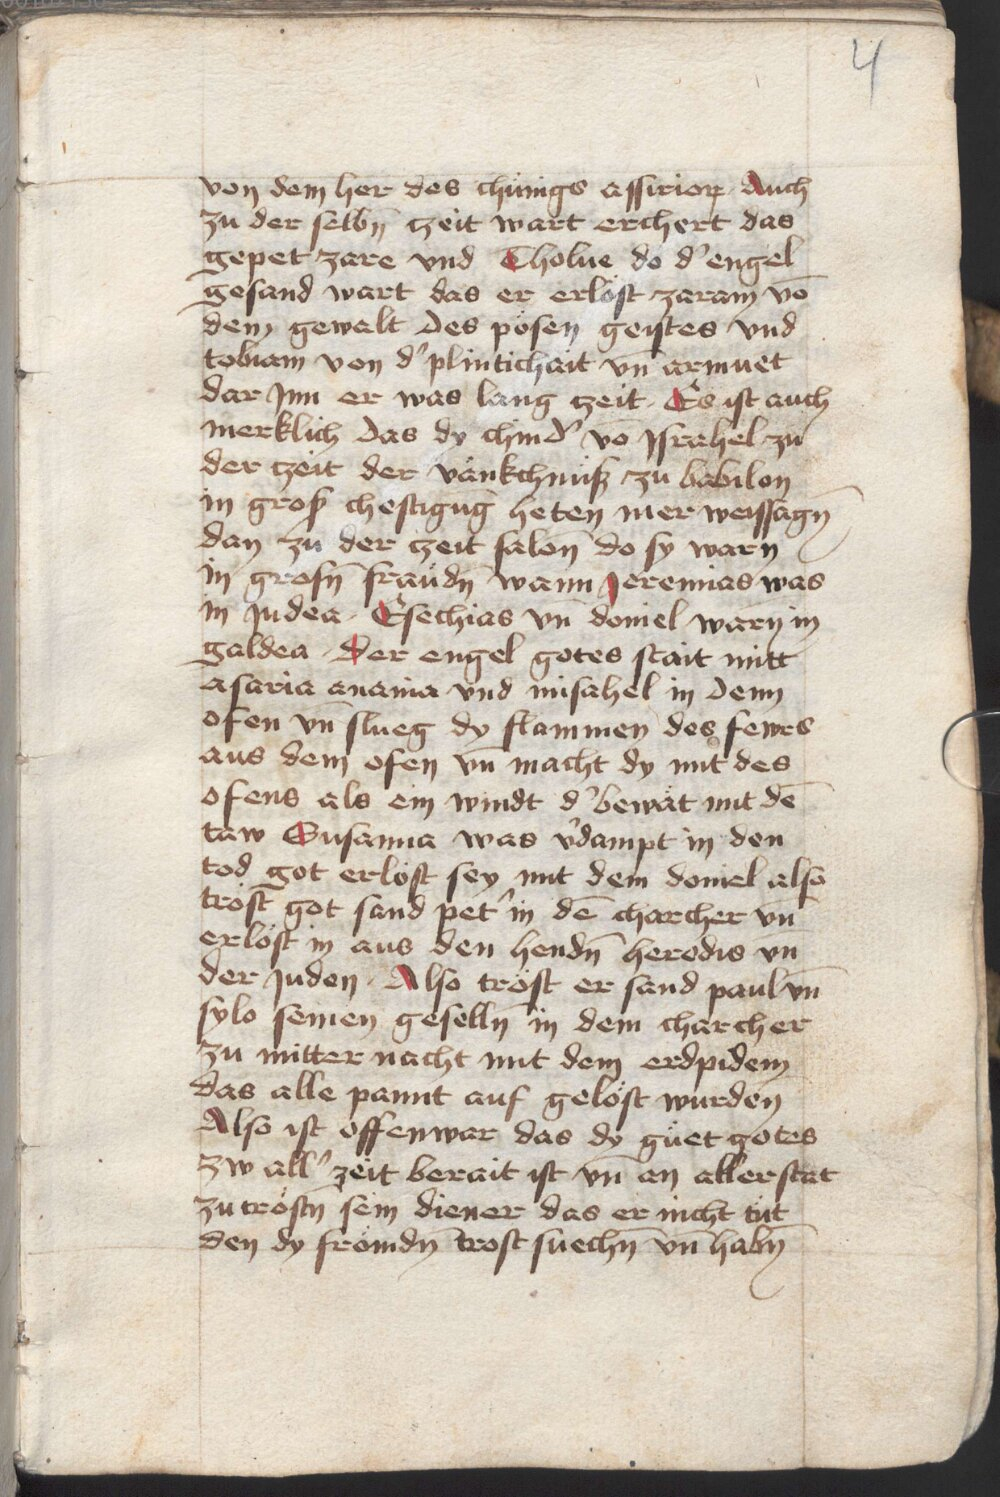 4
von dem her des chünigs assirior. Auch
zu der selbn̄ czeit wart erchert das
gepet zare vnd Tholue do d' engel
gesand wart das er erlöst zaram vō
dem gewalt des pösen geistes vnd
tobiam von d' plintichait vn̄ armuet
dar Inn er was lang czeit. Es ist auch
merklich das dy chind' vō Israhel zu
der czeit der vänkchnüß zu babilon
in gros chestigūg heten mer weissagn̄
dan zu der czeit salon̄ do sy warn
in grosn̄ fraüdn̄ wann Jeremias was
in Judea. Esechias vn̄ doniel warn in
galdea. Der engel gotes stait mitt
asaria anania vnd misahel in dem
ofen vn̄ slueg dy flammen des fewrs
aus dem ofen vn̄ macht dy mit des
ofens als ein windt d' bewät mit dē
taw Susanna was v'dampt in den
tod got erlöst sey mit dem doniel also
tröst got sand pet' in dē charcher vn̄
erlöst in aus den hendn̄ herodis vn̄
der Juden. Also tröst er sand paul vn̄
sylo seinen geselln̄ in dem charcher
zu mitter nacht mit dem erdpidem
das alle pannt auf gelöst wurden
Also ist offenwar das dy güet gotes
zw all' zeit berait ist vn̄ an aller stat
zu tröstn̄ sein diener das er nicht tüt
den dy frömdn̄ trost suechn̄ vn̄ habn̄